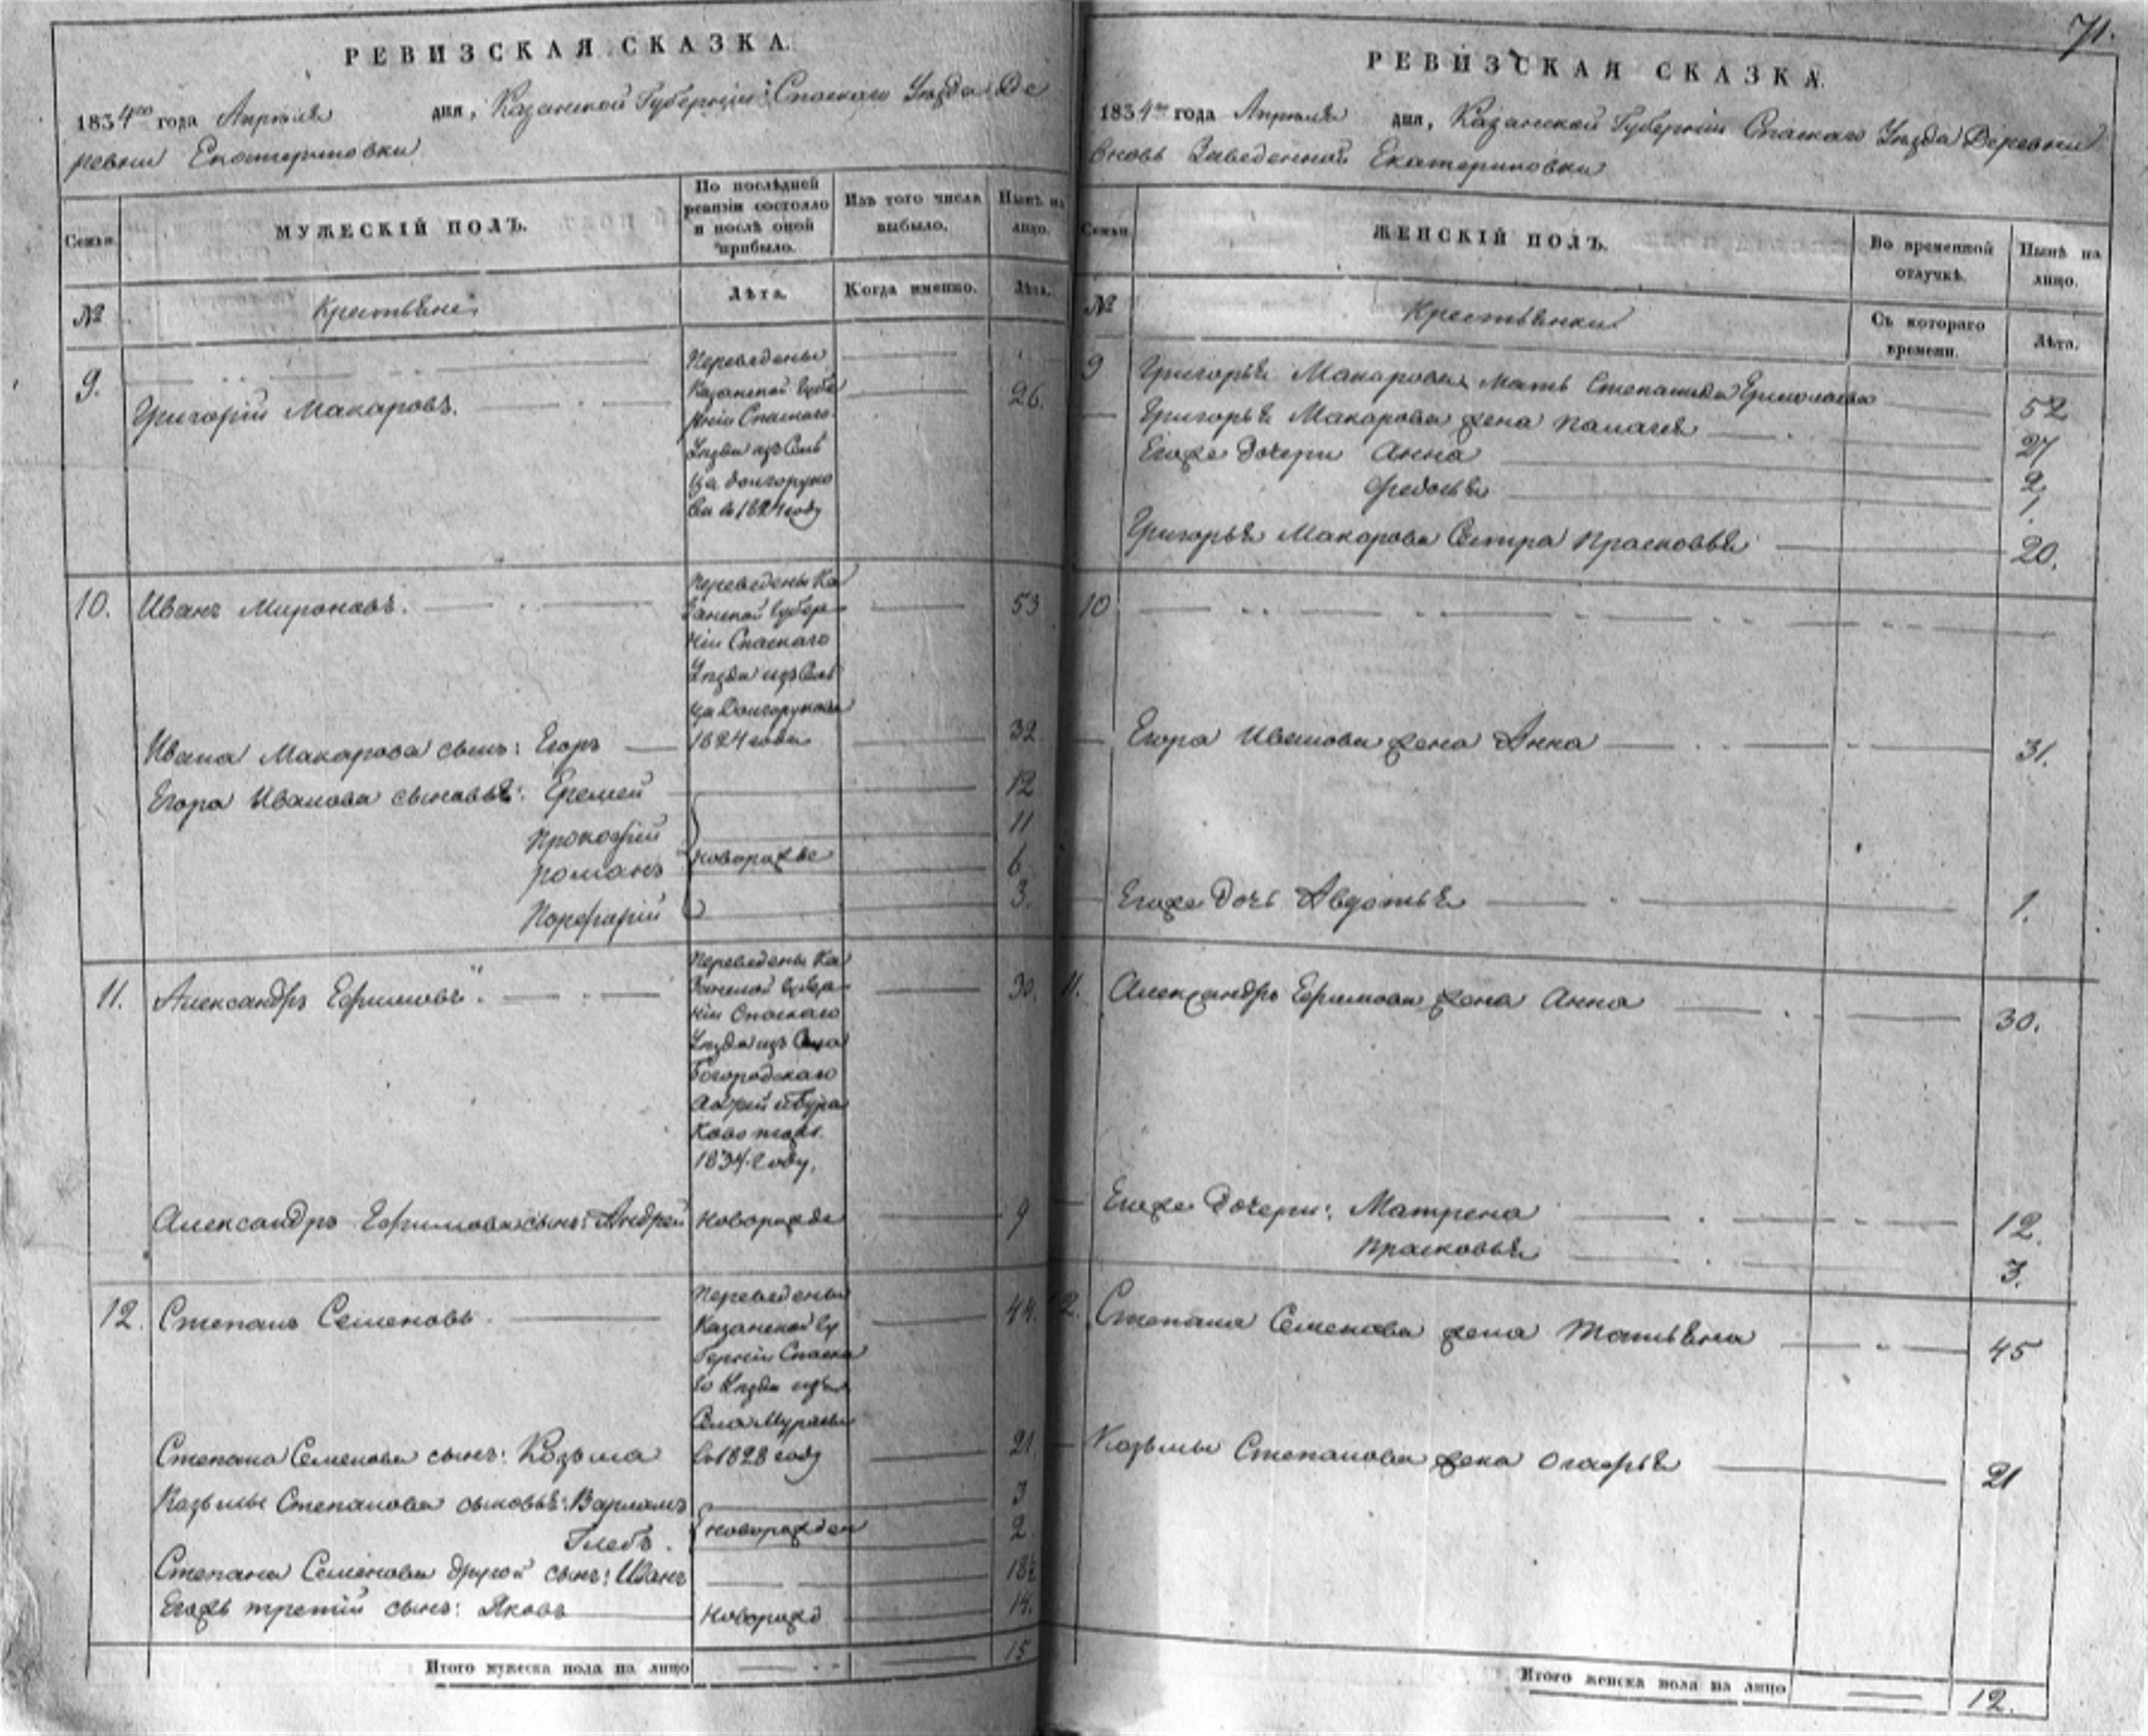 РЕВИЗСКАЯ СКАЗКА.
1834го года Апреля дня, Казанской Губернiи Спаскаго Уѣзда Де
ревни Екатериновки
Семьи.
МУЖЕСКIЙ ПОЛЪ.
По послѣдней
ревизiи состояло
и послѣ оной
прибыло.
Изъ того числа
выбыло.
Нынѣ на
лицо.
№
Крестьяне
Лѣта.
Когда именно.
Лѣта.
9.
Григорiй Макаровъ.
Переведены
Казанской Губе
рнiи Спаскаго
Уѣзда изъ Сель
ца Долгоруко
ва в 1824 году
26.
10.
Иванъ Мироновъ.
Переведены Ка
занской Губер
нiи Спаскаго
Уѣзда изъ Сель
ца Долгорукова
1824 года
53
Ивана Макарова сынъ: Егоръ
32
Егора Иванова сыновья: Еремей
12
Прокофiй
11
романъ
новорожде
6
Порфирiй
3.
11.
Александръ Ефимовъ.
Переведены Ка
занской Губер
нiи Спаскаго
Уѣзда изъ Села
Богородскаго
1834 году,
30.
Александръ Ефимова сынъ: Андрей
Новорожде
9
12.
Степанъ Семеновъ
Переведены
Казанской Гу
бернiи Спаска
го Уѣзда изъ
Села
в 1828 году
44.
Степана Семенова сынъ: Козьма
21
Козьмы Степанова сыновья: Варламъ
3
Глебъ.
новорожден
2.
Степана Семенова другой сынъ: Иванъ
Егожъ третiй сынъ: Яковъ
Новорожд
14.
Итого мужеска пола на лицо
15
71.
РЕВИЗСКАЯ СКАЗКА.
1834го года Апреля дня, Казанской Губернiи Спаскаго Уѣзда Деревни
вновь Заведенной Екатериновки
Семьи.
ЖЕНСКIЙ ПОЛЪ.
Во временной
отлучкѣ.
Нынѣ на
лицо.
№
Крестьянки
Съ котораго
времени.
Лѣта.
9
Григорья Макарова Мать Степанида
52
Григорья Макарова жена Палагея
27
Егоже Дочери Анна
2,
Федосья
1.
Григорья Макарова Сестра Прасковья
20.
10
Егора Иванова жена Анна
31.
Егоже Дочь Авдотья
1.
11.
Александръ Ефимова жена Анна
30.
Егоже Дочери: Матрена
12.
Прасковья
3.
12.
Степана Семенова жена Татьяна
45
Козьмы Степанова жена Агафья
21
Итого женска пола на лицо
12.